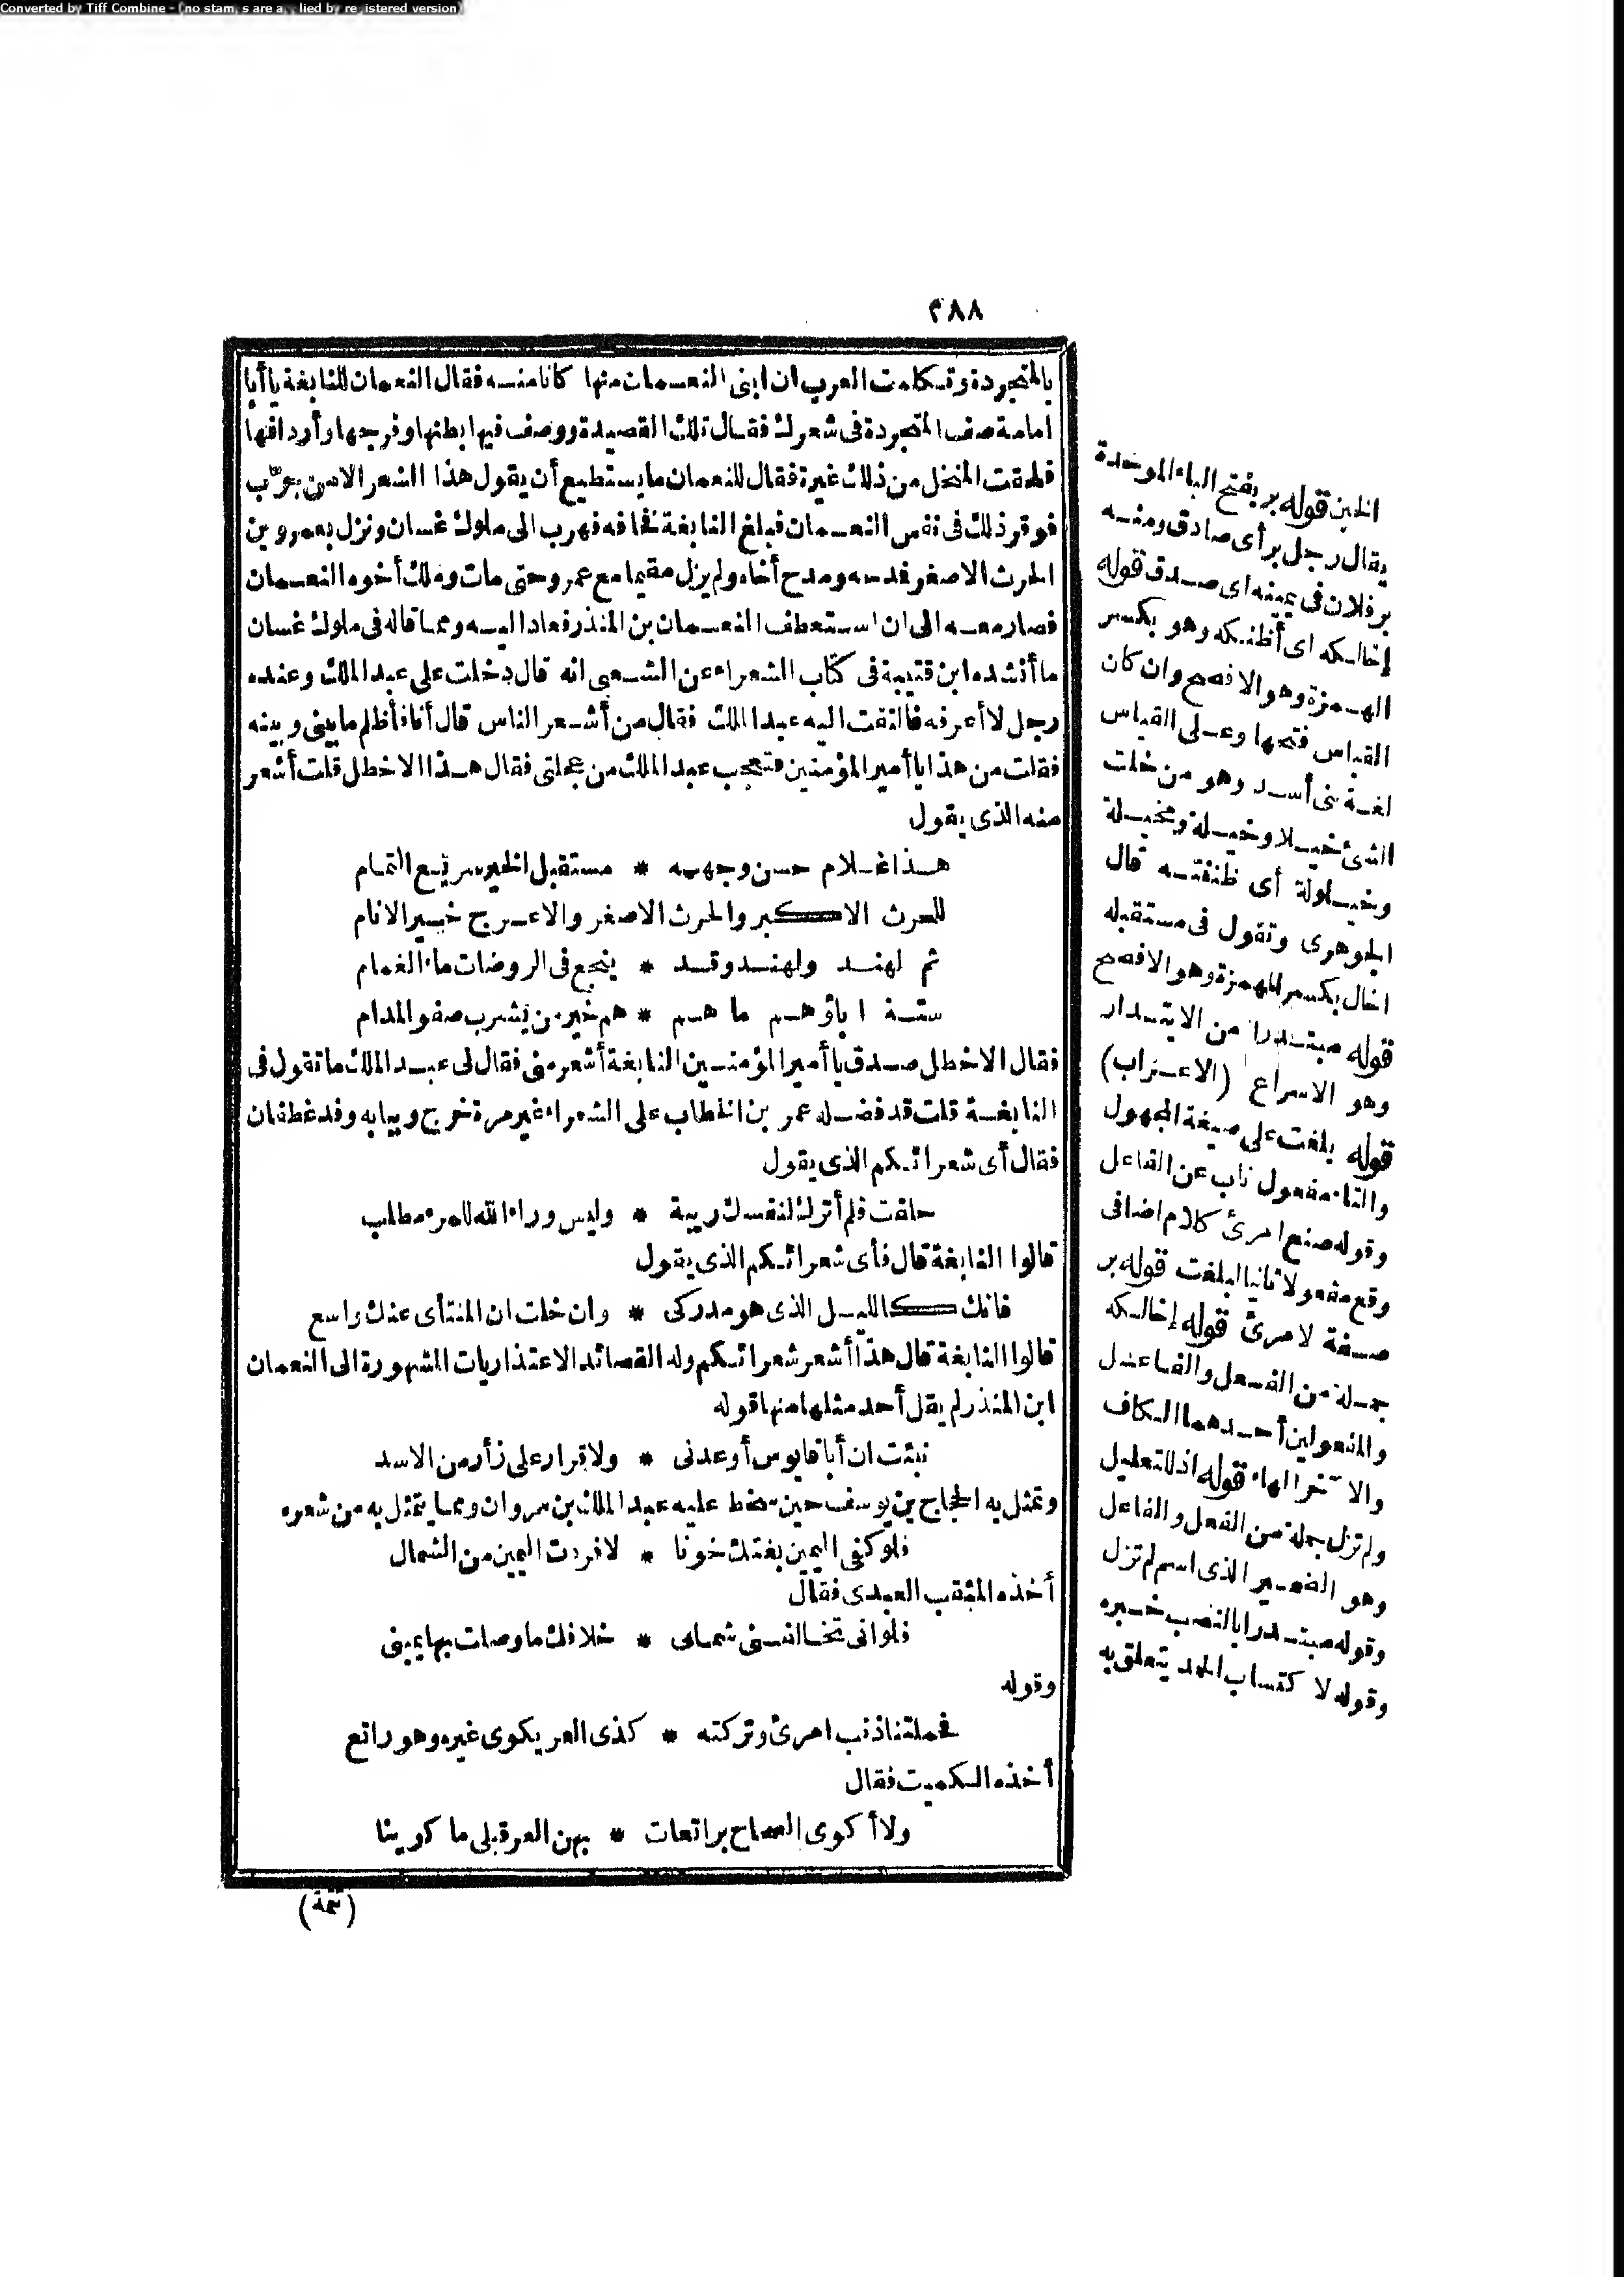 Converted by Tiff Combine - (no stamps are applied by registered version)
٢٨٨
بالمتجردة وتكلمت العرب ان ابنى النعمان منها كانا منه فقال النعمان للنابغة يا أبا
امامة صف المتجردة فى شعرك فقال تلك القصيدة ووصف فيها بطنها وفرجها وأردافها
فلحقت المنخل من ذلك غيرة فقال للنعمان ما يستطيع أن يقول هذا الشعر الا من جرّب
فوقر ذلك فى نفس النعمان فبلغ النابغة فخافه فهرب الى ملوك غسان ونزل بعمرو بن
الحرث الاصغر فمدحه ومدح أخاه ولم يزل مقيما مع عمرو حتى مات وملك أخوه النعمان
فصار معه الى ان استعطف النعمان بن المنذر فعاد اليه ومما قاله فى ملوك غسان
ما أنشده ابن قتيبة فى كتاب الشعراء عن الشعبى انه قال دخلت على عبد الملك وعنده
رجل لا أعرفه فالتفت اليه عبد الملك فقال من أشعر الناس قال أنا فأظلم ما بينى وبينه
فقلت من هذا يا أمير المؤمنين فتعجب عبد الملك من عجلتى فقال هذا الاخطل قلت أشعر
منه الذى يقول
هذا غلام حسن وجهه * مستقبل الخير سريع التمام
للحرث الاكبر والحرث الاصغر والاعرج خير الانام
ثم لهند ولهند وقد * ينجع فى الروضات ماء الغمام
ستة اباؤهم ما هم * هم خير من يشرب صفو المدام
فقال الاخطل صدق يا أمير المؤمنين النابغة أشعر منى فقال لى عبد الملك ما تقول فى
النابغة قلت قد فضله عمر بن الخطاب على الشعراء غير مرة خرج وببابه وفد غطفان
فقال أى شعرائكم الذى يقول
حلفت فلم أترك لنفسك ريبة * وليس وراء الله للمرء مطلب
قالوا النابغة قال فأى شعرائكم الذى يقول
فانك كالليل الذى هو مدركى * وان خلت ان المنتأى عنك واسع
قالوا النابغة قال هذا أشعر شعرائكم وله القصائد الاعتذاريات المشهورة الى النعمان
ابن المنذر لم يقل أحد مثلها منها قوله
نبئت ان أبا قابوس أوعدنى * ولا قرار على زأر من الاسد
وتمثل به الحجاج بن يوسف حين سخط عليه عبد الملك بن مروان ومما يتمثل به من شعره
فلو كفى اليمين بغتك خونا * لافردت اليمين من الشمال
أخذه المثقب العبدى فقال
فلو انى تخالفنى شمالى * خلافك ما وصلت بها يمينى
وقوله
فحملتنا ذنب امرئ وتركته * كذى العر يكوى غيره وهو راتع
أخذه الكميت فقال
ولا أكوى الصحاح براتعات * بهن العر قبلى ما كوينا
(تتمة)
الخبن قوله بر بفتح الباء الموحدة
يقال رجل بر أى صادق ومنه
بر فلان فى يمينه اى صدق قوله
إخالكه اى أظنكه وهو بكسر
الهمزة وهو الافصح وان كان
القياس فتحها وعلى القياس
لغة بنى أسد وهو من خلت
الشئ خيلا وخيلة ومخيلة
وخيلولة أى ظننته قال
الجوهرى وتقول فى مستقبله
اخال بكسر الهمزة وهو الافصح
قوله مبتدرا من الابتدار
وهو الاسراع (الاعراب)
قوله بلغت على صيغة المجهول
والتاء مفعول ناب عن الفاعل
وقوله صنع امرئ كلام اضافى
وقع مفعولا ثانيا لبلغت قوله بر
صفة لامرئ قوله إخالكه
جملة من الفعل والفاعل
والمفعولين أحدهما الكاف
والآخر الهاء قوله اذ للتعليل
ولم تزل جملة من الفعل والفاعل
وهو الضمير الذى اسم لم تزل
وقوله مبتدرا بالنصب خبره
وقوله لاكتساب الحمد يتعلق به